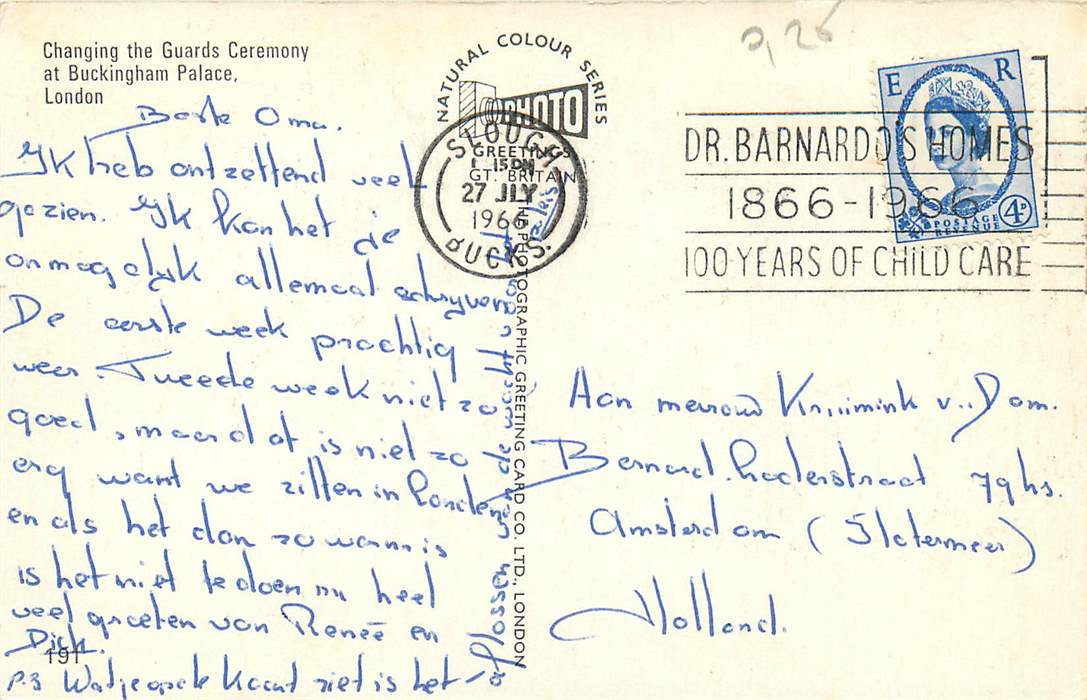 Changing the Guards Ceremony
at Buckingham Palace,
London
Beste Oma.
Ik heb ontzettend veel
gezien. Ik kan het je
onmogelijk allemaal schrijven
De eerste week prachtig
weer. Tweede week niet zo
goed, maar dat is niet zo
erg want we zitten in Londen
en als het dan zo warm is
is het niet te doen nu heel
veel groeten van Reneé en
Dick.
191
P.S Wat je op de kaart ziet is het
aflossen van de wacht
NATURAL COLOUR SERIES
PHOTO
GREETINGS
GT. BRITAIN
PHOTOGRAPHIC GREETING CARD CO., LTD., LONDON
SLOUGH
27 JLY
1966
BUCKS.
2,25
DR. BARNARDO'S HOMES
1866-1966
100 YEARS OF CHILD CARE
E R
POSTAGE
REVENUE
4D
Aan mevrouw Kruimink v. Dam.
Bernard. Loderstraat 79 hs.
Amsterdam (Slotermeer)
Holland.